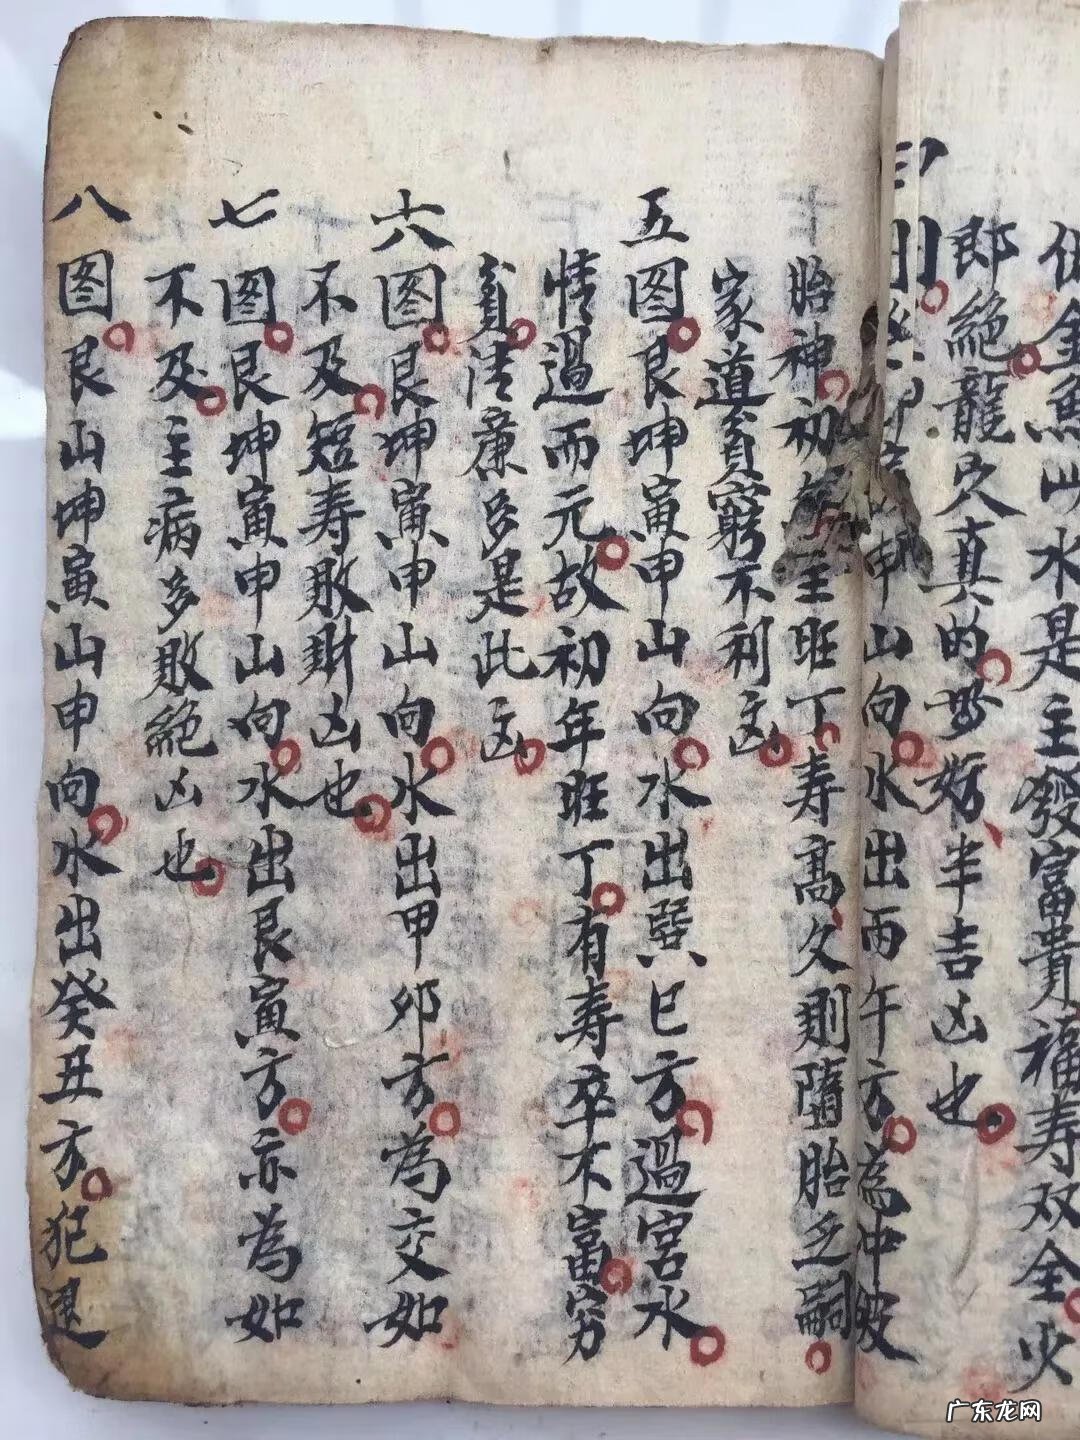 金魚此水是主發富貴福寿双全火
郎絶龍穴真的 半吉凶也
申山向水出丙午方為冲破
胎神初 主旺丁寿高久則隋胎乏嗣
家道貧窮不利
五图艮坤寅申山向水出巽巳方過宮水
情過而元故初年旺丁有寿卒不富穷
多是此
六图艮坤寅申山向水出甲卯方為交如
不及短寿敗財凶也
七图艮坤寅申山向水出艮寅方亦為如
不及主病多敗絶凶也
八图艮山坤寅山申向水出癸丑方犯退
广东龙网